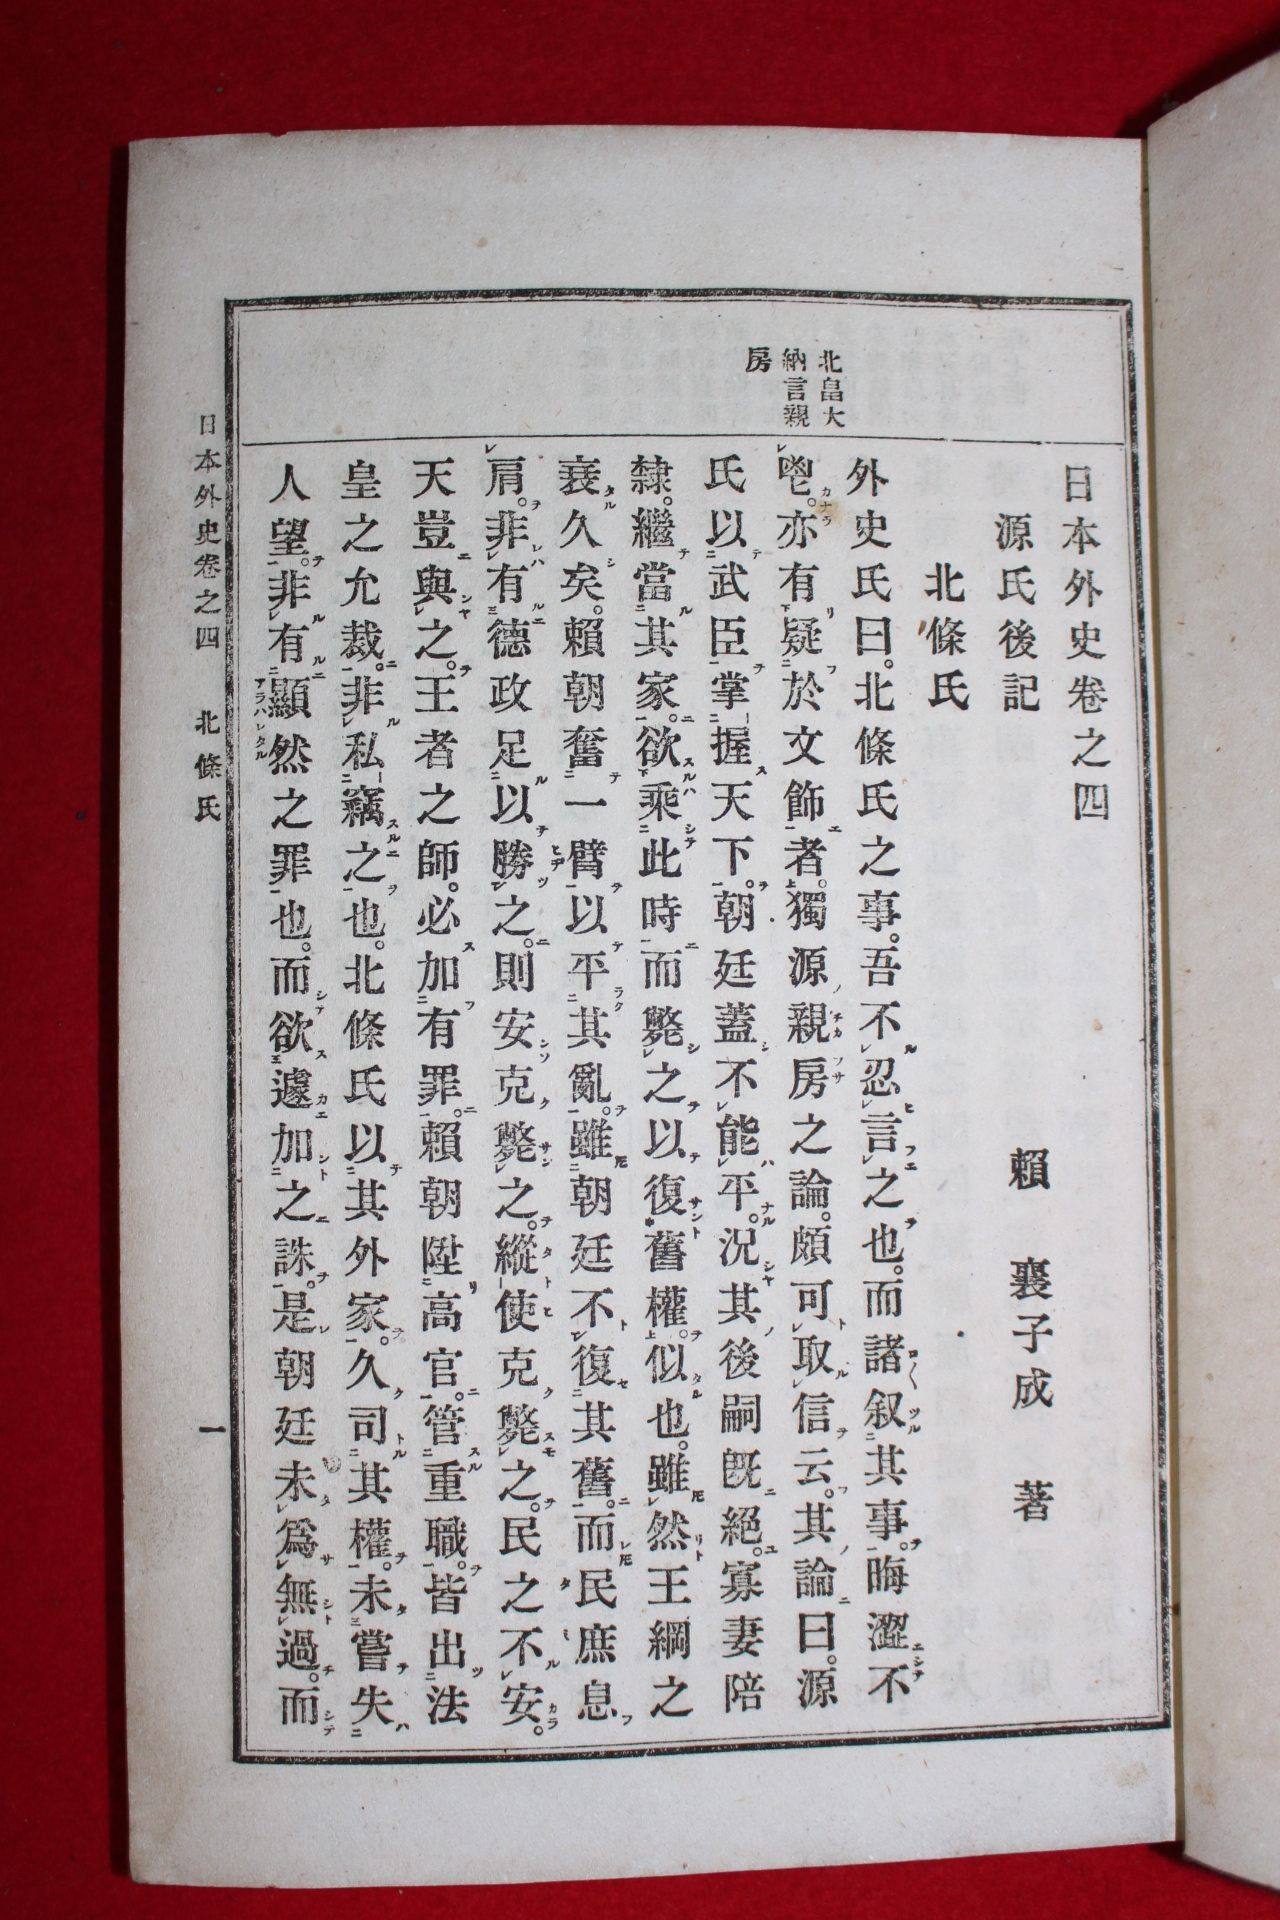 日本外史卷之四
賴 襄子成 著
源氏後記
北條氏
外史氏曰。北條氏之事。吾不忍言之也。而諸叙其事。晦澀不
鬯。亦有疑於文飾者。獨源親房之論。頗可取信云。其論曰。源
氏以武臣掌握天下。朝廷蓋不能平。況其後嗣既絕。寡妻陪
隸。繼當其家。欲乘此時而斃之以復舊權。似也。雖然王綱之
衰久矣。賴朝奮一臂以平其亂。雖朝廷不復其舊。而民庶息
肩。非有德政足以勝之。則安克斃之。縱使克斃之。民之不安。
天豈與之。王者之師。必加有罪。賴朝陞高官。管重職。皆出法
皇之允裁。非私竊之也。北條氏以其外家。久司其權。未嘗失
人望。非有顯然之罪也。而欲遽加之誅。是朝廷未爲無過。而
北畠大
納言親
房
日本外史卷之四 北條氏 一